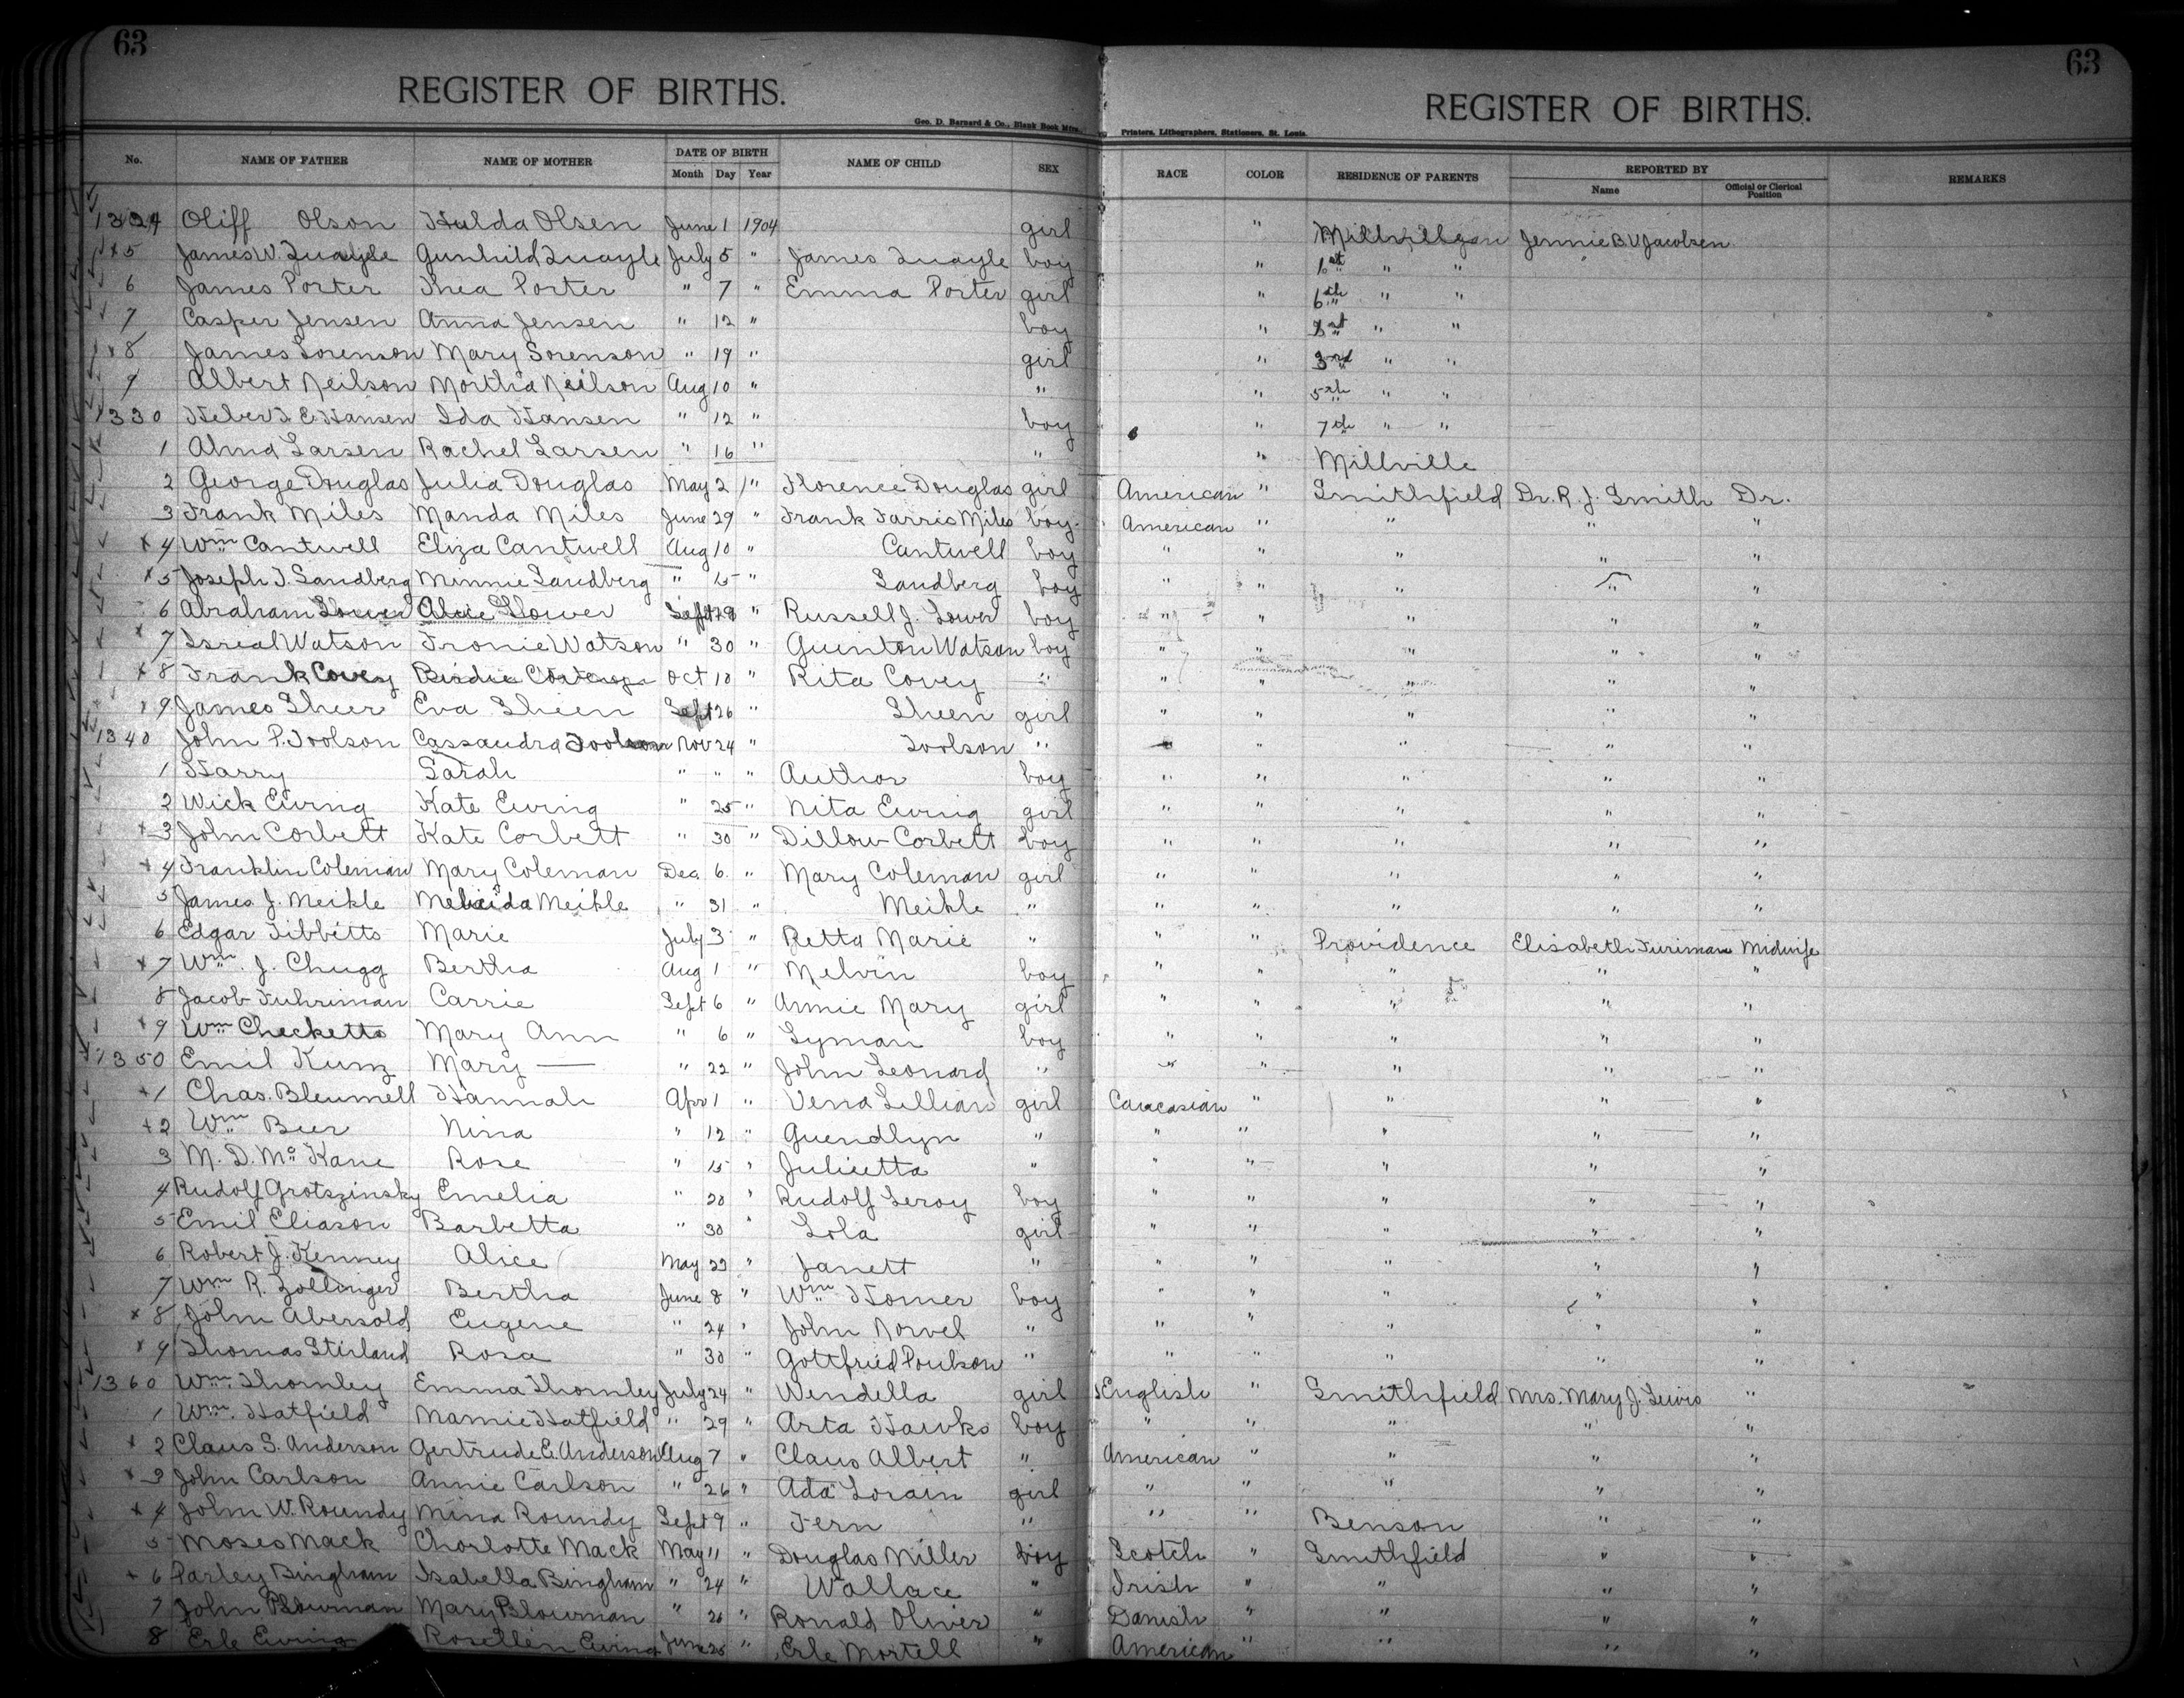 63 63
REGISTER OF BIRTHS. REGISTER OF BIRTHS.
Geo. D. Barnard & Co., Blank Book Mfrs. Printers, Lithographers, Stationers, St. Louis.
No. NAME OF FATHER NAME OF MOTHER DATE OF BIRTH NAME OF CHILD SEX RACE COLOR RESIDENCE OF PARENTS REPORTED BY REMARKS
Month Day Year Name Official or Clerical Position
1324 Oliff Olson Hulda Olsen June 1 1904 girl " Jennie B V Jacobsen
x5 James W. Quayle Gunhild Quayle July 5 " James Quayle boy " 1st " "
6 James Porter Thea Porter " 7 " Emma Porter girl " 6th " "
7 Casper Jensen Anna Jensen " 12 " boy " " "
x8 James Sorenson Mary Sorenson " 19 " girl " 3rd " "
9 Albert Neilson Mortha Neilson Aug 10 " " " 5th " "
1330 Heber T. C. Hansen Ida Hansen " 12 " boy " 7th " "
1 Alma Larsen Rachel Larsen " 16 " " " Millville
2 George Douglas Julia Douglas May 2 " Florence Douglas girl American " Smithfield Dr. R. J. Smith Dr.
3 Frank Miles Manda Miles June 29 " Frank Farris Miles boy American " " " "
x4 Wm Cantwell Eliza Cantwell Aug 10 " Cantwell boy " " " " "
x5 Joseph T. Sandberg Minnie Sandberg " 15 " Sandberg boy " " " " "
6 Abraham Lower Lower Sept " Russell J. Lower boy " " " " "
x7 Isreal Watson Fronie Watson " 30 " Guinton Watson boy " " " " "
x8 Frank Covey Birdie Oct 10 " Rita Covey " " " " " "
x9 James Sheen Eva Sheen Sept 26 " Sheen girl " " " " "
1340 John P. Toolson Cassandra Toolson Nov 24 " Toolson " " " " "
1 Harry Sarah " " " Author boy " " " " "
2 Wick Ewing Kate Ewing " 25 " Nita Ewing girl " " " " "
x3 John Corbett Kate Corbett " 30 " Dillow Corbett boy " " " " "
x4 Franklin Coleman Mary Coleman Dec. 6 " Mary Coleman girl " " " " "
5 James J. Meikle Meikle " 31 " Meikle " " " " " "
6 Edgar Tibbitts Marie July 3 " Retta Marie " " " Providence Elisabeth Furiman Midwife
x7 Wm. J. Chugg Bertha Aug 1 " Melvin boy " " " " "
8 Jacob Fuhriman Carrie Sept 6 " Annie Mary girl " " " " "
x9 Wm Checketts Mary Ann " 6 " Lyman boy " " " " "
1350 Emil Kunz Mary — " 22 " John Leonard " " " " " "
x1 Chas. Bleumell Hannah Apr 1 " Vena Lillian girl Caucasian " " " "
x2 Wm Beer Nina " 12 " Guendlyn " " " " " "
3 M. D. Mc Kane Rose " 15 " Julietta " " " " " "
4 Rudolf Grotszinsky Emelia " 20 " Rudolf Leroy boy " " " " "
5 Emil Eliason Barbetta " 30 " Lola girl " " " " "
6 Robert J. Kenney Alice May 23 " Janett " " " " " "
7 Wm R. Zollinger Bertha June 8 " Wm Homer boy " " " " "
x8 John Abersold Eugene " 24 " John Norvel " " " " " "
x9 Thomas Stirland Rosa " 30 " Gottfried Poulson " " " " " "
1360 Wm. Thornley Emma Thornley July 24 " Wendella girl English " Smithfield Mrs. Mary J. Lewis "
1 Wm. Hatfield Mamie Hatfield " 29 " Arta Hawks boy " " " " "
x2 Claus S. Anderson Gertrude E. Anderson Aug 7 " Claus Albert " American " " " "
x3 John Carlson Annie Carlson " 26 " Ada Lorain girl " " " " "
x4 John W. Roundy Mina Roundy Sept 9 " Fern " " " Benson " "
5 Moses Mack Chorlotte Mack May 11 " Douglas Miller boy Scotch " Smithfield " "
x6 Parley Bingham Isabella Bingham " 24 " Wallace " Irish " " " "
7 John Plowman Mary Plowman " 26 " Ronald Oliver " Danish " " " "
8 Erle Ewing Rosellen Ewing June 25 " Erle Mortell " American " " " "